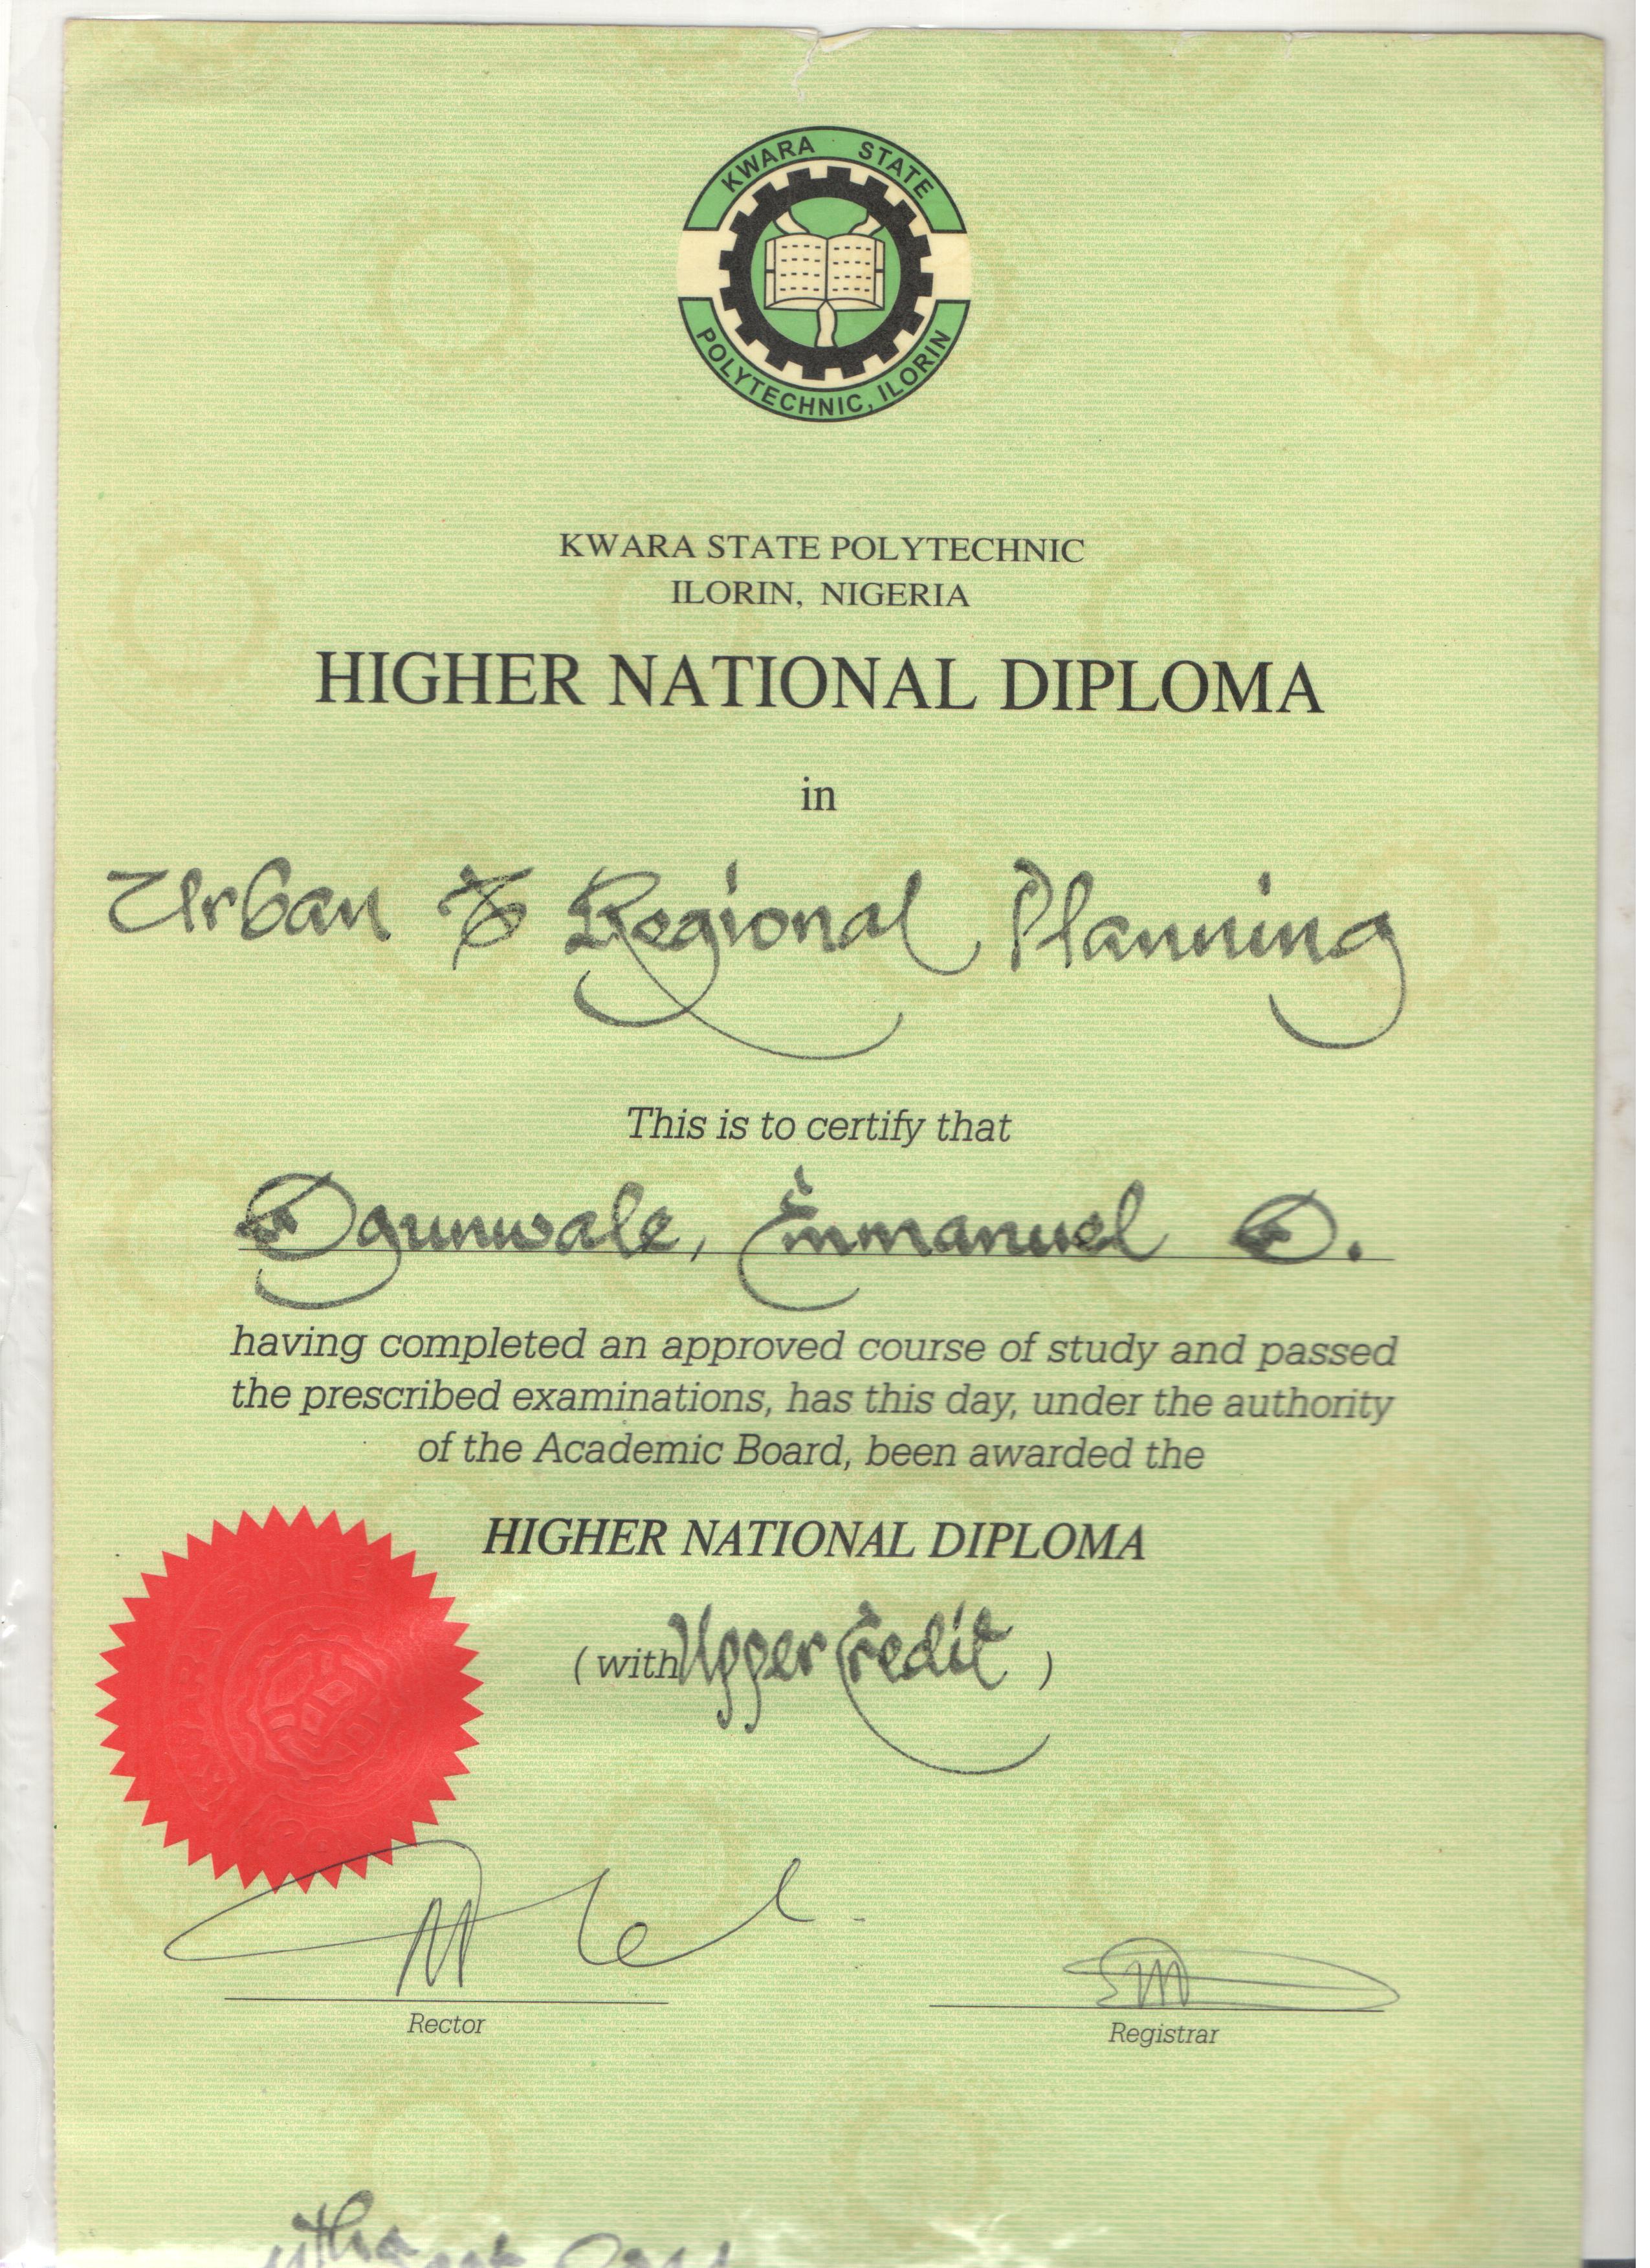 KWARA STATE
POLYTECHNIC, ILORIN
KWARA STATE POLYTECHNIC
ILORIN, NIGERIA
HIGHER NATIONAL DIPLOMA
in
Urban & Regional Planning
This is to certify that
Ogunwale, Emmanuel O.
having completed an approved course of study and passed
the prescribed examinations, has this day, under the authority
of the Academic Board, been awarded the
HIGHER NATIONAL DIPLOMA
(with Upper Credit)
Rector
Registrar